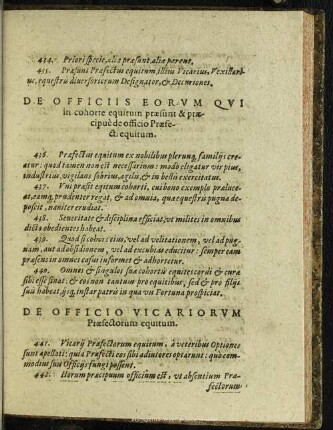 434. Priori specie, aliæ præsunt, aliæ parent.
435. Præsunt Præfectus equitum, illius Vicarius, Vexillari-
us, equestris diversoriorum Designator, & Decuriones.
DE OFFICIIS EORVM QVI
in cohorte equitum præsunt & præ-
cipuè de officio Præfe-
cti equitum.
436. Præfectus equitum ex nobilibus plerunq; familijs cre-
atur: quod tamen non est necessarium: modo eligatur vir pius,
industrius, vigilans, sobrius, agilis, & in bellis exercitatus.
437. Vni præsit equitum cohorti, cui bono exemplo præluce-
at, eamq; prudenter regat, & ad omnia, quæ equestris pugna de-
poscit, naviter erudiat.
438. Severitate & disciplina efficiat, vt milites in omnibus
dicto obedientes habeat.
439. Quod si cohors eius, vel ad velitationem, vel ad pug-
nam, aut ad obsidionem, vel ad excubias educitur: semper eam
præsens in omnes casus informet & adhortetur.
440. Omnes & singulos suæ cohortis equites cordi & curæ
sibi esse sinat: & eos non tantum pro equitibus, sed & pro filijs
suis habeat, ijsq; instar patris in qua vis Fortuna prospiciat.
DE OFFICIO VICARIORVM
Præfectorum equitum.
441. Vicarij Præfectorum equitum, à veteribus Optiones
sunt apellati: quia Præfecti eos sibi adiutores optarunt: quo com-
modius suis Officijs fungi possent.
442. Horum præcipuum officium est, vt absentium Præ-
fectorum